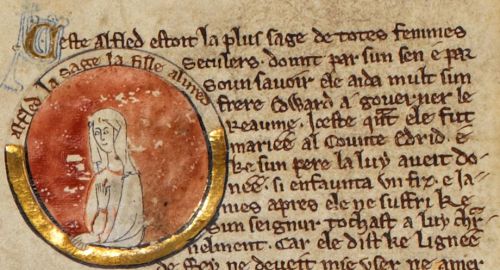 Ceste Alfled estoit la plus sage de totes femmes
seculers. dount par sun sen e par
soun savoir ele aida mult sun
frere Edward a governer le
Reaume. Ceste qant ele fut
mariee al Counte Edrid. e
ke sun pere la luy aveit do
nee. si enfaunta un fiz. e ja
mes apres ele ne suffri ke
sun seignur tochast a luy char
nelment. Car ele dist ke lignee
de Rey ne deveit mie user ne amer
alfled la sage la fille alured